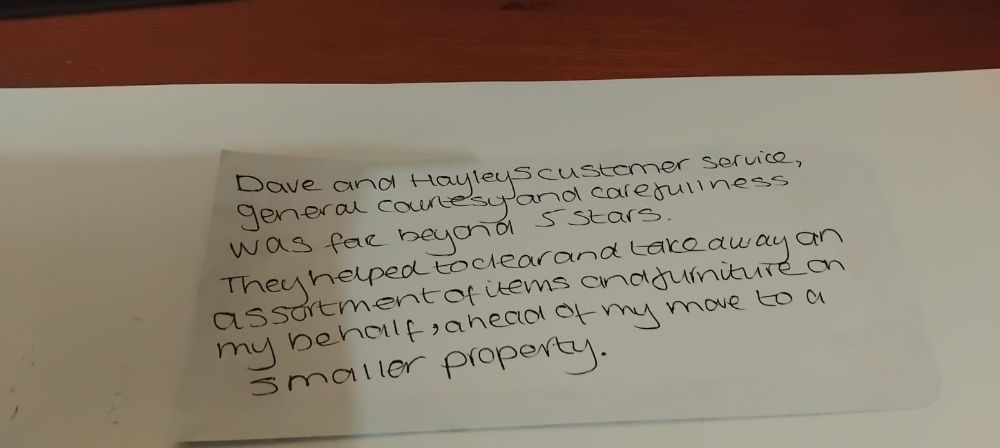 Dave and Hayleys customer service,
general courtesy and carefullness
was far beyond 5 stars.
They helped to clear and take away an
assortment of items and furniture on
my behalf, ahead of my move to a
smaller property.